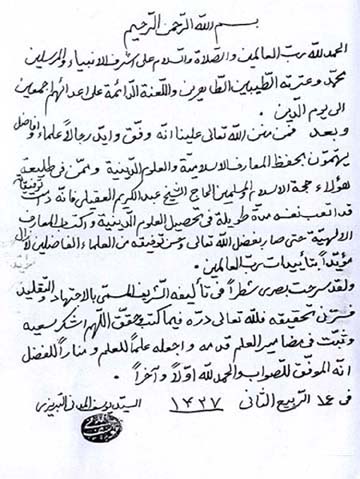 بسم الله الرحمن الرحيم
الحمد لله رب العالمين والصلاة والسلام على اشرف الانبياء والمرسلين
محمد وعترته الطيبين الطاهرين واللعنة الدائمة على اعدائهم اجمعين
الى يوم الدين .
وبعد فمن منن الله تعالى علينا انه وفق وايد رجالاً علماء وافاضل
يهتمون بحفظ المعارف الاسلامية والعلوم الدينية وممن في طليعة
هؤلاء حجة الاسلام والمسلمين الحاج الشيخ عبد الكريم العقيلي فانه دامت توفيقاته
قد اتعب نفسه مدة طويلة في تحصيل العلوم الدينية وكتب المعارف
الالهية حتى صار بفضل الله تعالى وحسن توفيقه من العلماء الفاضلين لازال
مؤيداً بتأييدات رب العالمين .
ولقد سرحت بصري شطراً في تأليفه الشريف المسمى بالاجتهاد والتقليد
فسرني تحقيقه فلله تعالى دره فيما كتب وحقق اللهم اشكر سعيه
وثبت في مضامير العلم قدمه واجعله علماً للعلم ومناراً للفضل
انه الموفق للصواب والحمد لله اولاً وآخراً .
في ١٤ الربيع الثاني ١٤٢٧ السيد يوسف المدني التبريزي